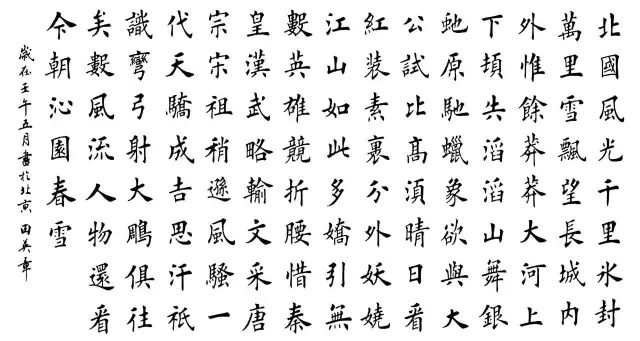 北國風光千里氷封
萬里雪飄望長城内
外惟餘莽莽大河上
下頓失滔滔山舞銀
虵原馳蠟象欲與大
公試比髙湏晴日看
紅裝素裹分外妖嬈
江山如此多嬌引無
數英雄競折腰惜秦
皇漢武略輸文采唐
宗宋祖稍遜風騷一
代天驕成吉思汗祇
識彎弓射大鵰俱往
矣數風流人物還看
今朝沁園春雪
歲在壬午五月書於北京 田英章